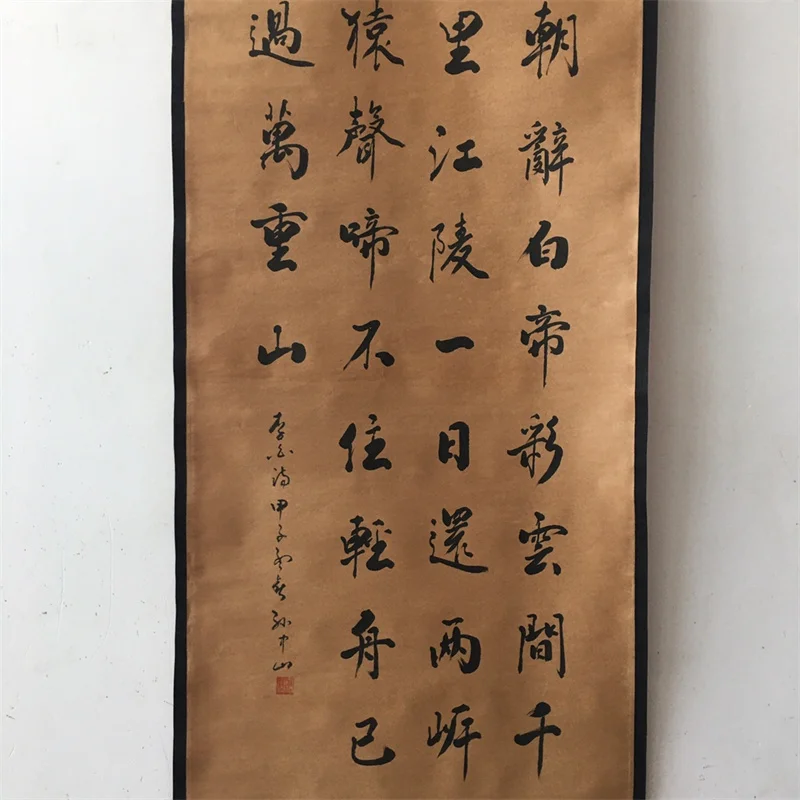 朝辭白帝彩雲間千
里江陵一日還两岍
猿聲啼不住輕舟已
過萬重山
李白詩甲子孟春孫中山